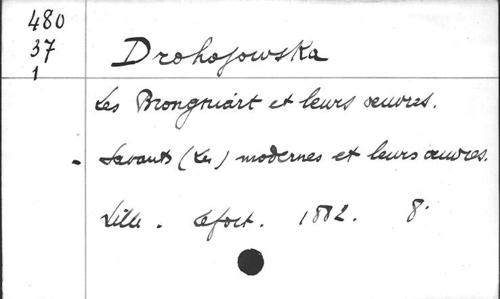 480
37
1
Drohojowska
Les Brongniart et leurs œuvres.
- Savants (Les) modernes et leurs œuvres.
Lille. Lefort. 1882. 8°